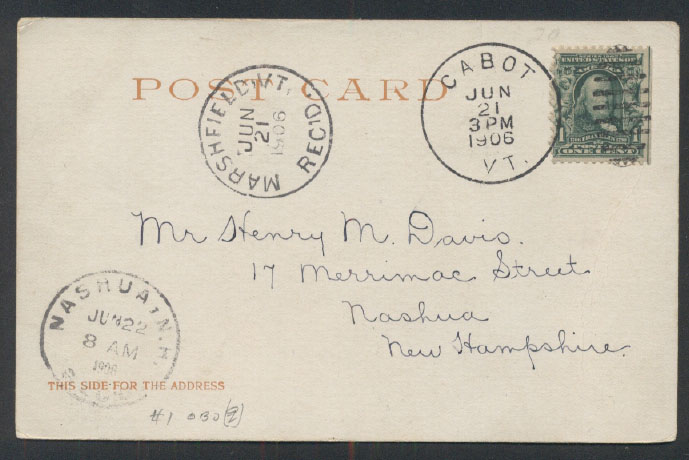 POST CARD
MARSHFIELD, VT. REC'D.
JUN
21
1906
CABOT
JUN
21
3 PM
1906
VT.
UNITED STATES OF
ONE CENT
Mr Henry M. Davis.
17 Merrimac Street
Nashua
New Hampshire.
NASHUA, N.H.
JUN 22
8 AM
1906
THIS SIDE FOR THE ADDRESS
#1 080